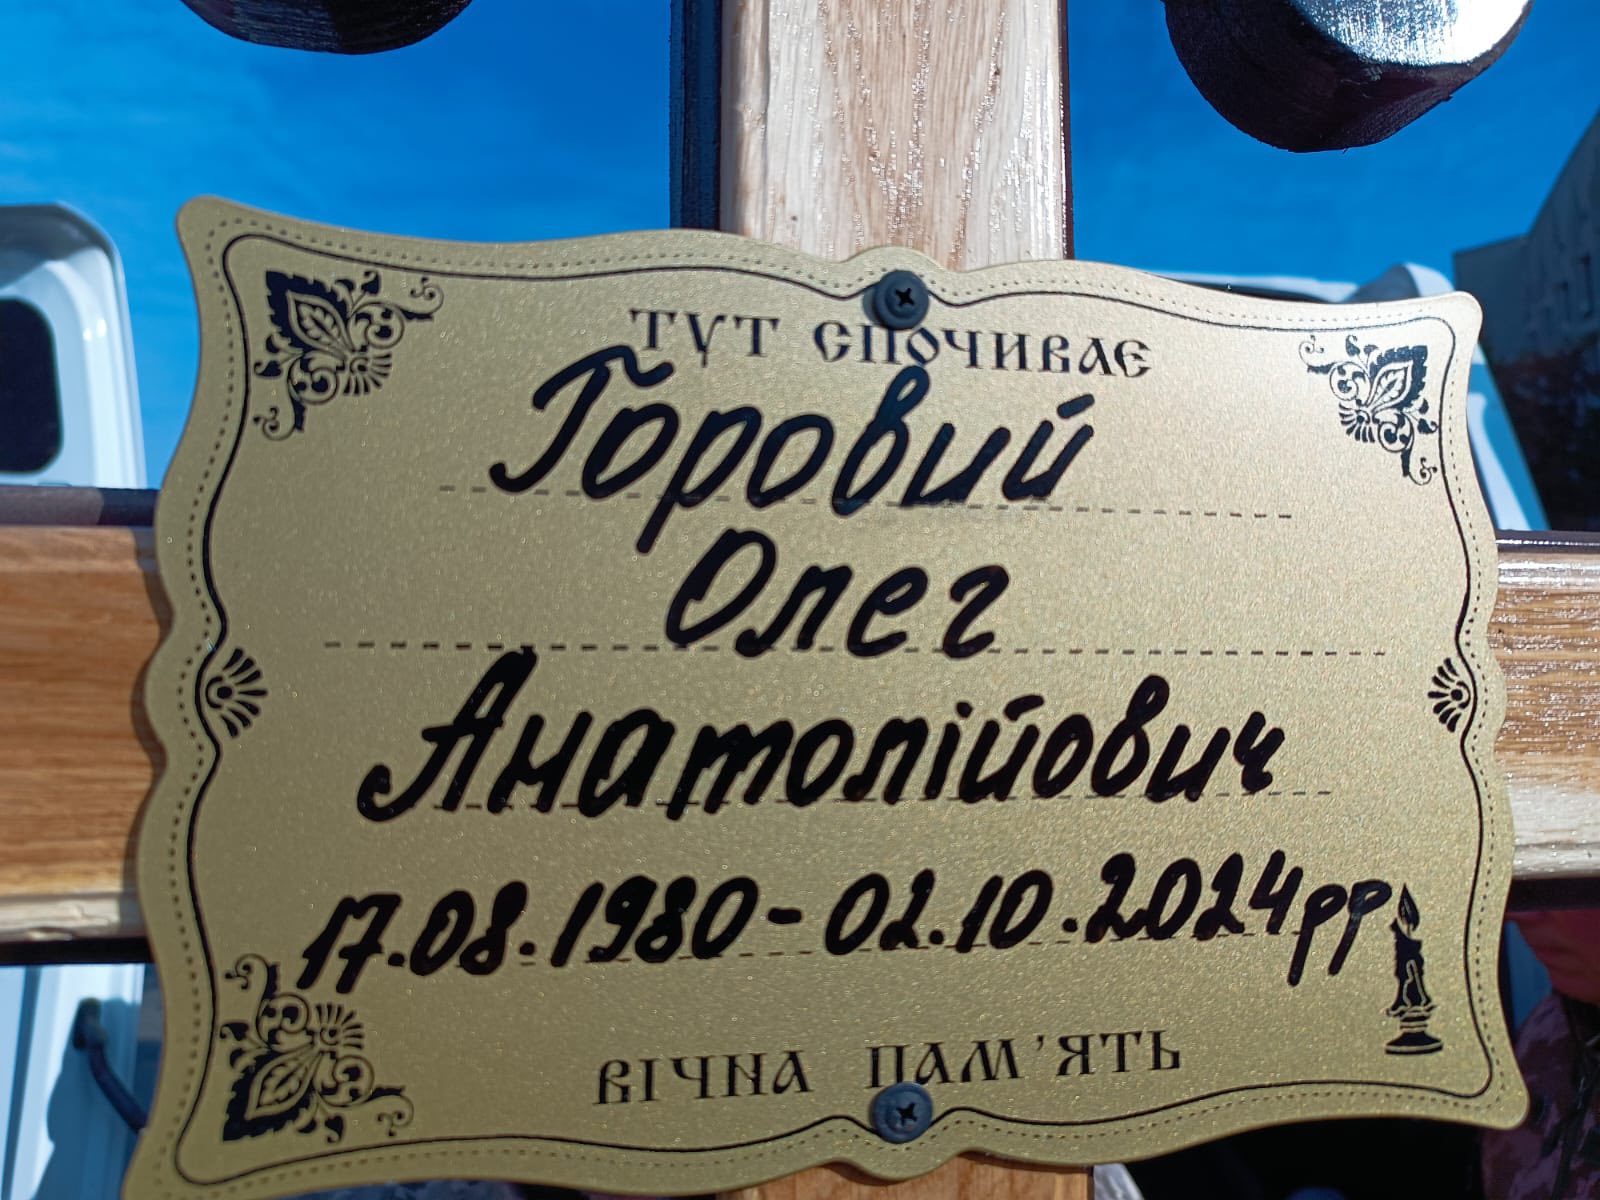 ТУТ СПОЧИВАЄ
Горовий
Олег
Анатолійович
17.08.1980-02.10.2024рр
ВІЧНА ПАМ'ЯТЬ